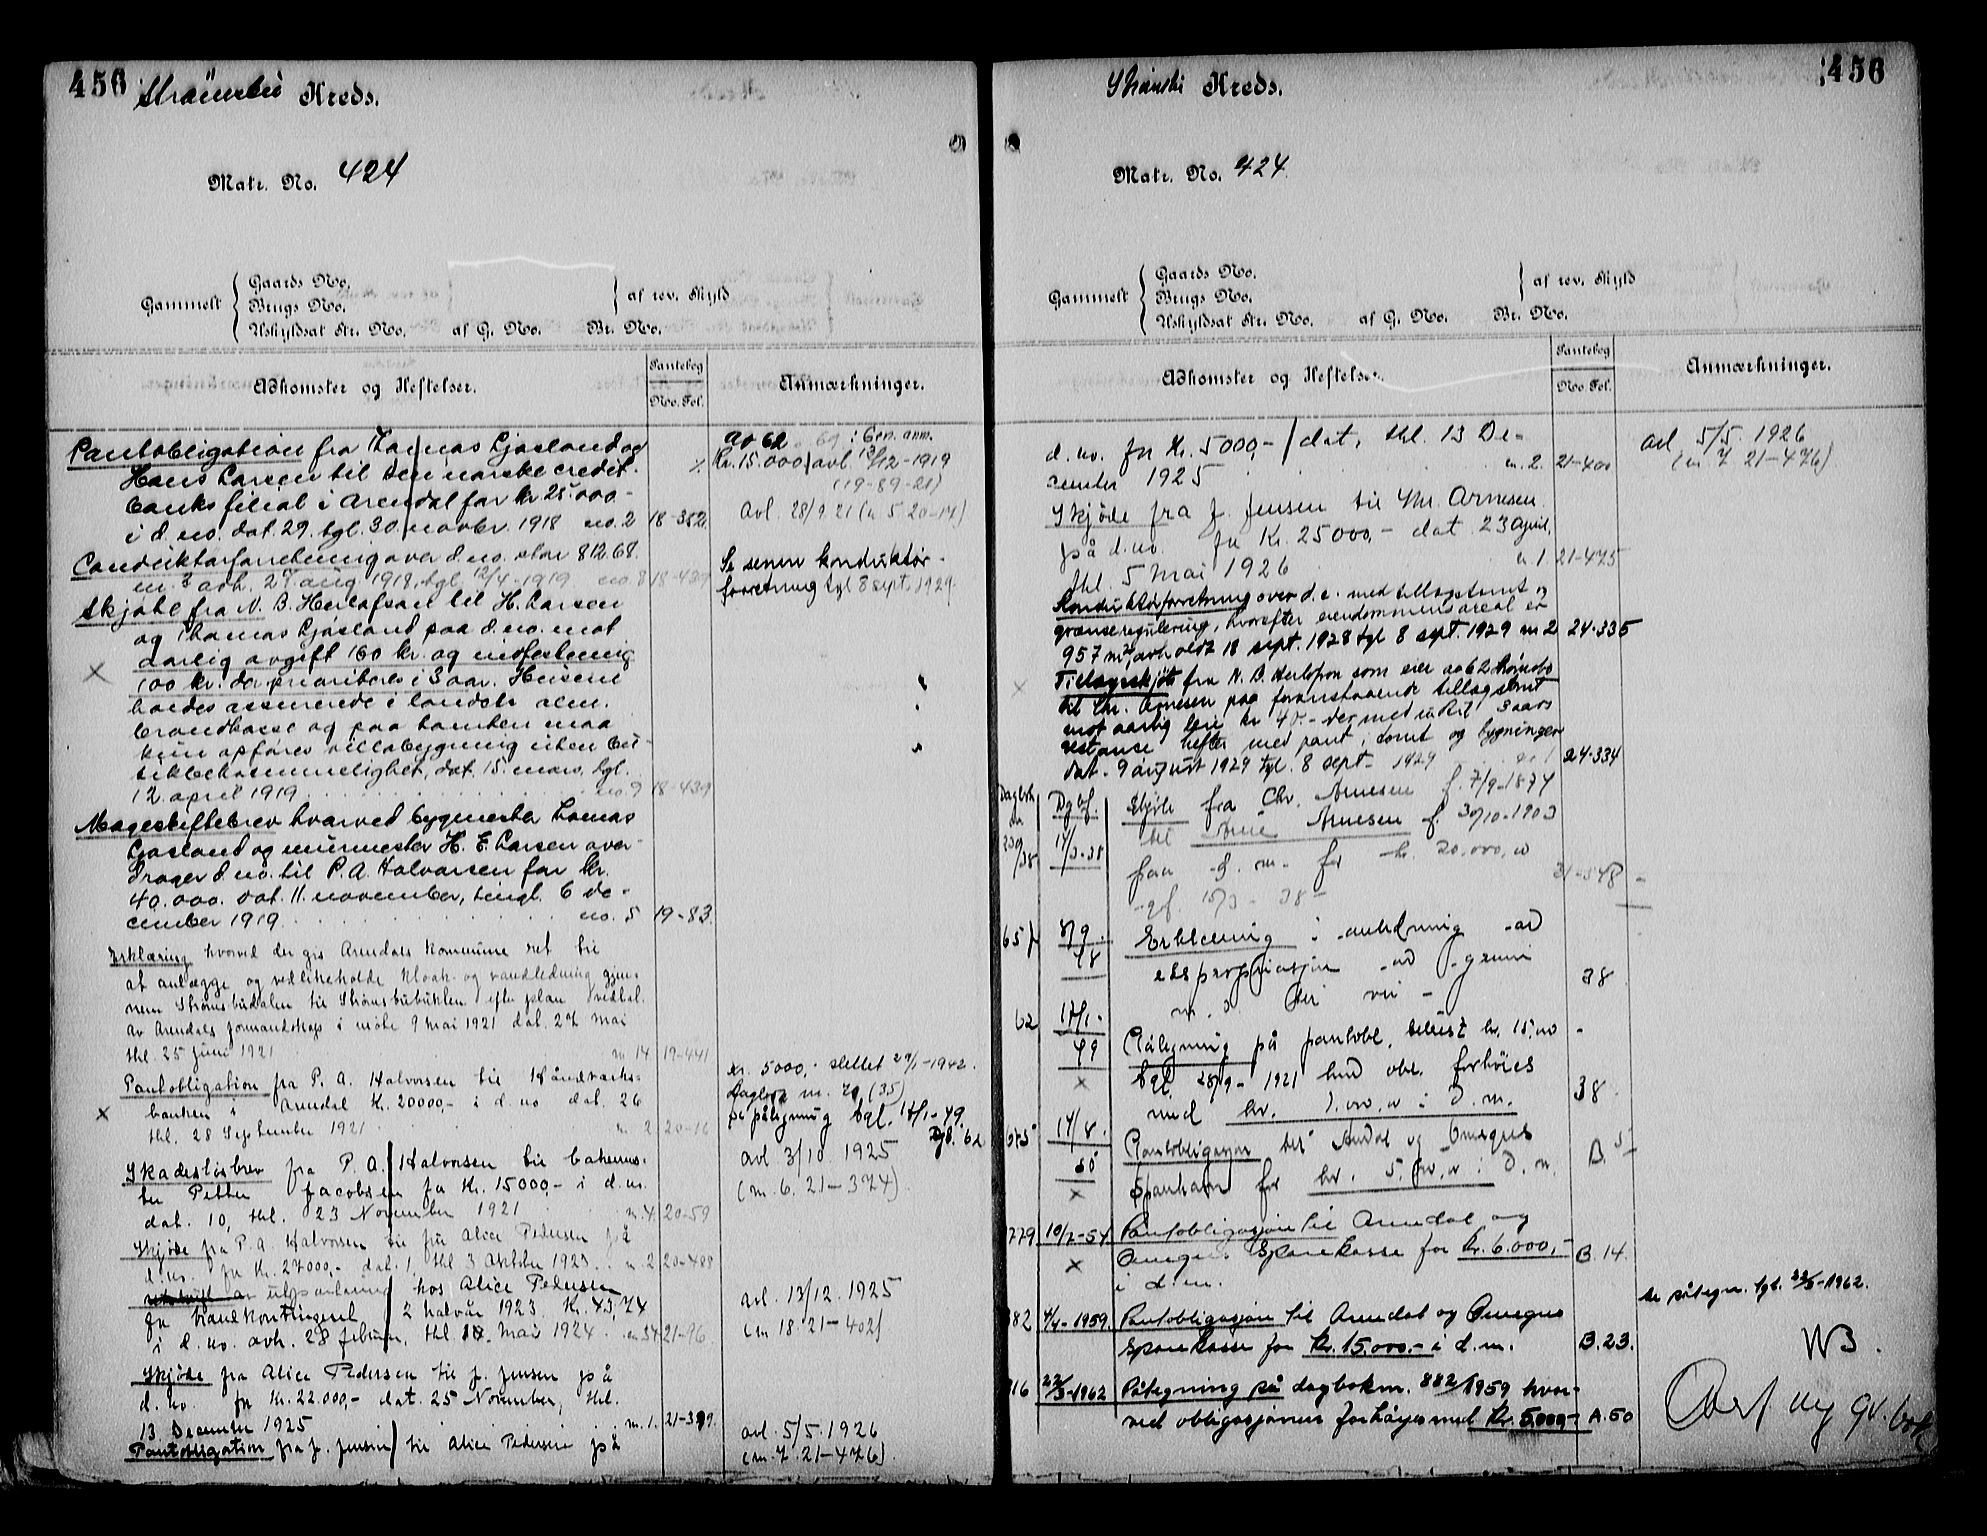 456 Strømsbu Kreds.
Matr. No. 424
Gammelt
Gaards No.
Brugs No.
Uskyldsat Str. No. af G. No. Br. No.
af rev. Skyld
Adkomster og Heftelser.
Pantebog
No. Fol.
Anmærkninger.
Pantobligation fra Thomas Gjøsland og
Hans Larsen til Den norske credit-
banks filial i Arendal for kr 25.000-
i d. no. dat. 29. tgl. 30. novbr. 1918 no. 2 18-352.
Av 62 69 : Gen. anm.
Kr. 15.000 avl. 13/12-1919
(19-89-21)
avl. 28/9 21 (n 5 20-14)
Conduktørforretning over d. no. stor 812.68.
m2 avh. 27. aug 1918, tgl 12/4-1919 no. 8 18-439
Se senere konduktør-
forretning tgl 8 sept. 1929.
Skjøte fra N. B. Herlofson til H. Larsen
og Thomas Gjøsland paa d. no. mot
aarlig avgift 160 kr. og indfestning
100 kr. der prioriteres i 3 aar. Husene
holdes assurerede i landets alm.
brandkasse og paa tomten maa
kun opføres villabygning uten bu-
tikbekvemmelighet, dat. 15. mars, tgl.
12. april 1919 no. 9 18-439
Mageskiftebrev hvorved bygmester Tomas
Gjøsland og murmester H. E. Larsen over-
drager d. no. til P. A. Halvorsen for kr.
40.000. dat. 11. november, tingl. 6 de-
cember 1919 no. 5 19-83.
Erklæring hvorved der gis Arendals Kommune ret til
at anlægge og vedlikeholde kloak- og vandledning gjen-
nem Strømsbudalen til Strømsbubukten efter plan vedtat
av Arendals formandskap i møte 9 Mai 1921 dat. 27 Mai
thl. 25 Juni 1921 n 14 19-441
Pantobligation fra P. A. Halvorsen til Håndværks-
banken i Arendal Kr. 20000,- i d. no dat. 26
thl. 28 September 1921 n. 2 20-16
kr. 5000,- slettet 29/1-1942.
Dagbok nr. 70 (35)
se påtegning tgl. 17/1-49.
Dgb. 62
Skadesløsbrev fra P. A. Halvorsen til bakermes-
ter Petter Jacobsen for Kr. 15000,- i d. no.
dat. 10, thl. 23 November 1921 n. 4 20-59
avl 3/10. 1925
(n. 6. 21-374).
Skjøde fra P. A. Halvorsen til fru Alice Pedersen på
d. no. for Kr. 27000,- dat. 1, thl 3 Oktober 1923. n. 2 20-488
av utpantning hos Alice Pedersen
for brandkontingent 2 halvår 1923 Kr. 43,74
i d. no. avh. 28 februar, thl. Mai 1924 n 34 21-96
avl. 13/12. 1925
(n 18 21-402)
Skjøde fra Alice Pedersen til J. Jensen på
d. no. for Kr. 22.000,- dat. 25 November, thl.
13. December 1925 n. 1. 21-399.
Pantobligation fra J. Jensen til Alice Pedersen på
avl. 5/5. 1926
(n. 7. 21-476).
Strømsbu Kreds. 456
Matr. No. 424
Gammelt
Gaards No.
Brugs No.
Uskyldsat Str. No. af G. No. Br. No.
af rev. Skyld
Adkomster og Heftelser.
Pantebog
No. Fol.
Anmærkninger.
d. no. for Kr. 5000,- dat, thl. 13 De-
cember 1925 n. 2. 21-400
avl 5/5. 1926
(n 7 21-476)
Skjøde fra J. Jensen til Chr. Arnesen
på d. no. for Kr. 25000,- dat. 23 April,
thl. 5 Mai 1926 n. 1 21-475
Konduktørforretning over d. e. med tillægstomt og
grænseregulering, hvorefter eiendommens areal er
957 m2, avholdt 18 sept. 1928 tgl 8 sept. 1929 nr 2 24-335
Tillægsskjøte fra N. B. Herlofson som eier av 62 Strømsbo
til Chr. Arnesen paa foranstaaende tillægstomt
mot aarlig leie kr 40.- der med indtil 3 aars
restanse hefter med pant i tomt og bygninger
dat. 9 august 1929 tgl. 8 sept. 1929 nr 1 24-334
Dagbok
nr Dg. bf.
239/38 17/3-38 Skjøte fra Chr. Arnesen f. 7/9-1874
til Arne Arnesen f 30/10-1903
paa d. m. for kr. 20.000,00
gf. 15/3-38 31-548
657 8/9-48 Erklæring i anledning av
ekspropriasjon av grunn
m. v. til vei 38
62 17/1-49 Påtegning på pantobl. till. kr. 15,00
tgl. 28/9-1921 hvor obl. forhøies
med kr. 5.000,00 i d. m. 38.
675 14/8-50 Pantobligasjon til Arendal og Omegns
Sparekasse for kr. 5.000,00 i d. m. B. 5
779 10/2-54 Pantobligasjon til Arendal og
Omegns Sparekasse for kr. 6.000,-
i d. m. B. 14.
882 4/4-1959 Pantobligasjon til Arendal og Omegns
Sparekasse for kr. 15.000.- i d. m. B. 23.
se påtegn. tgl. 22/3-1962.
22/3-1962 Påtegning på dagboknr. 882/1959 hvor-
ved obligasjonen forhøyes med kr. 5.000,- A. 50
NB.
Overf ny gr. bok